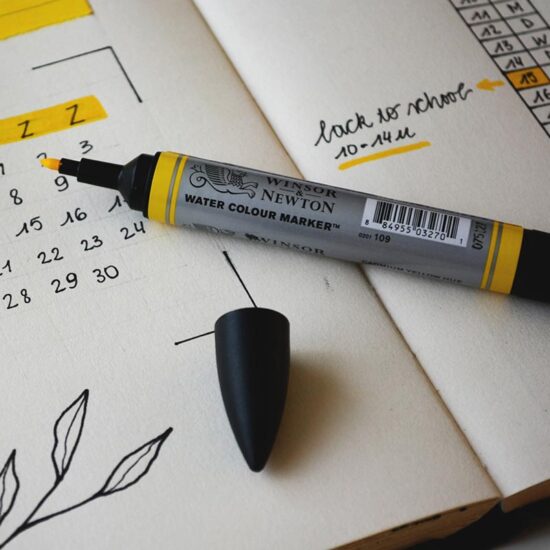 Z Z
2 3
8 9
15 16
21 22 23 24
28 29 30
WINSOR
&
NEWTON
WATER COLOUR MARKER™
8 84955 03270 1
0201 109
WINSOR
CADMIUM YELLOW HUE
back to school
10-14 u
11 M
12 D
13 W
14
15
16